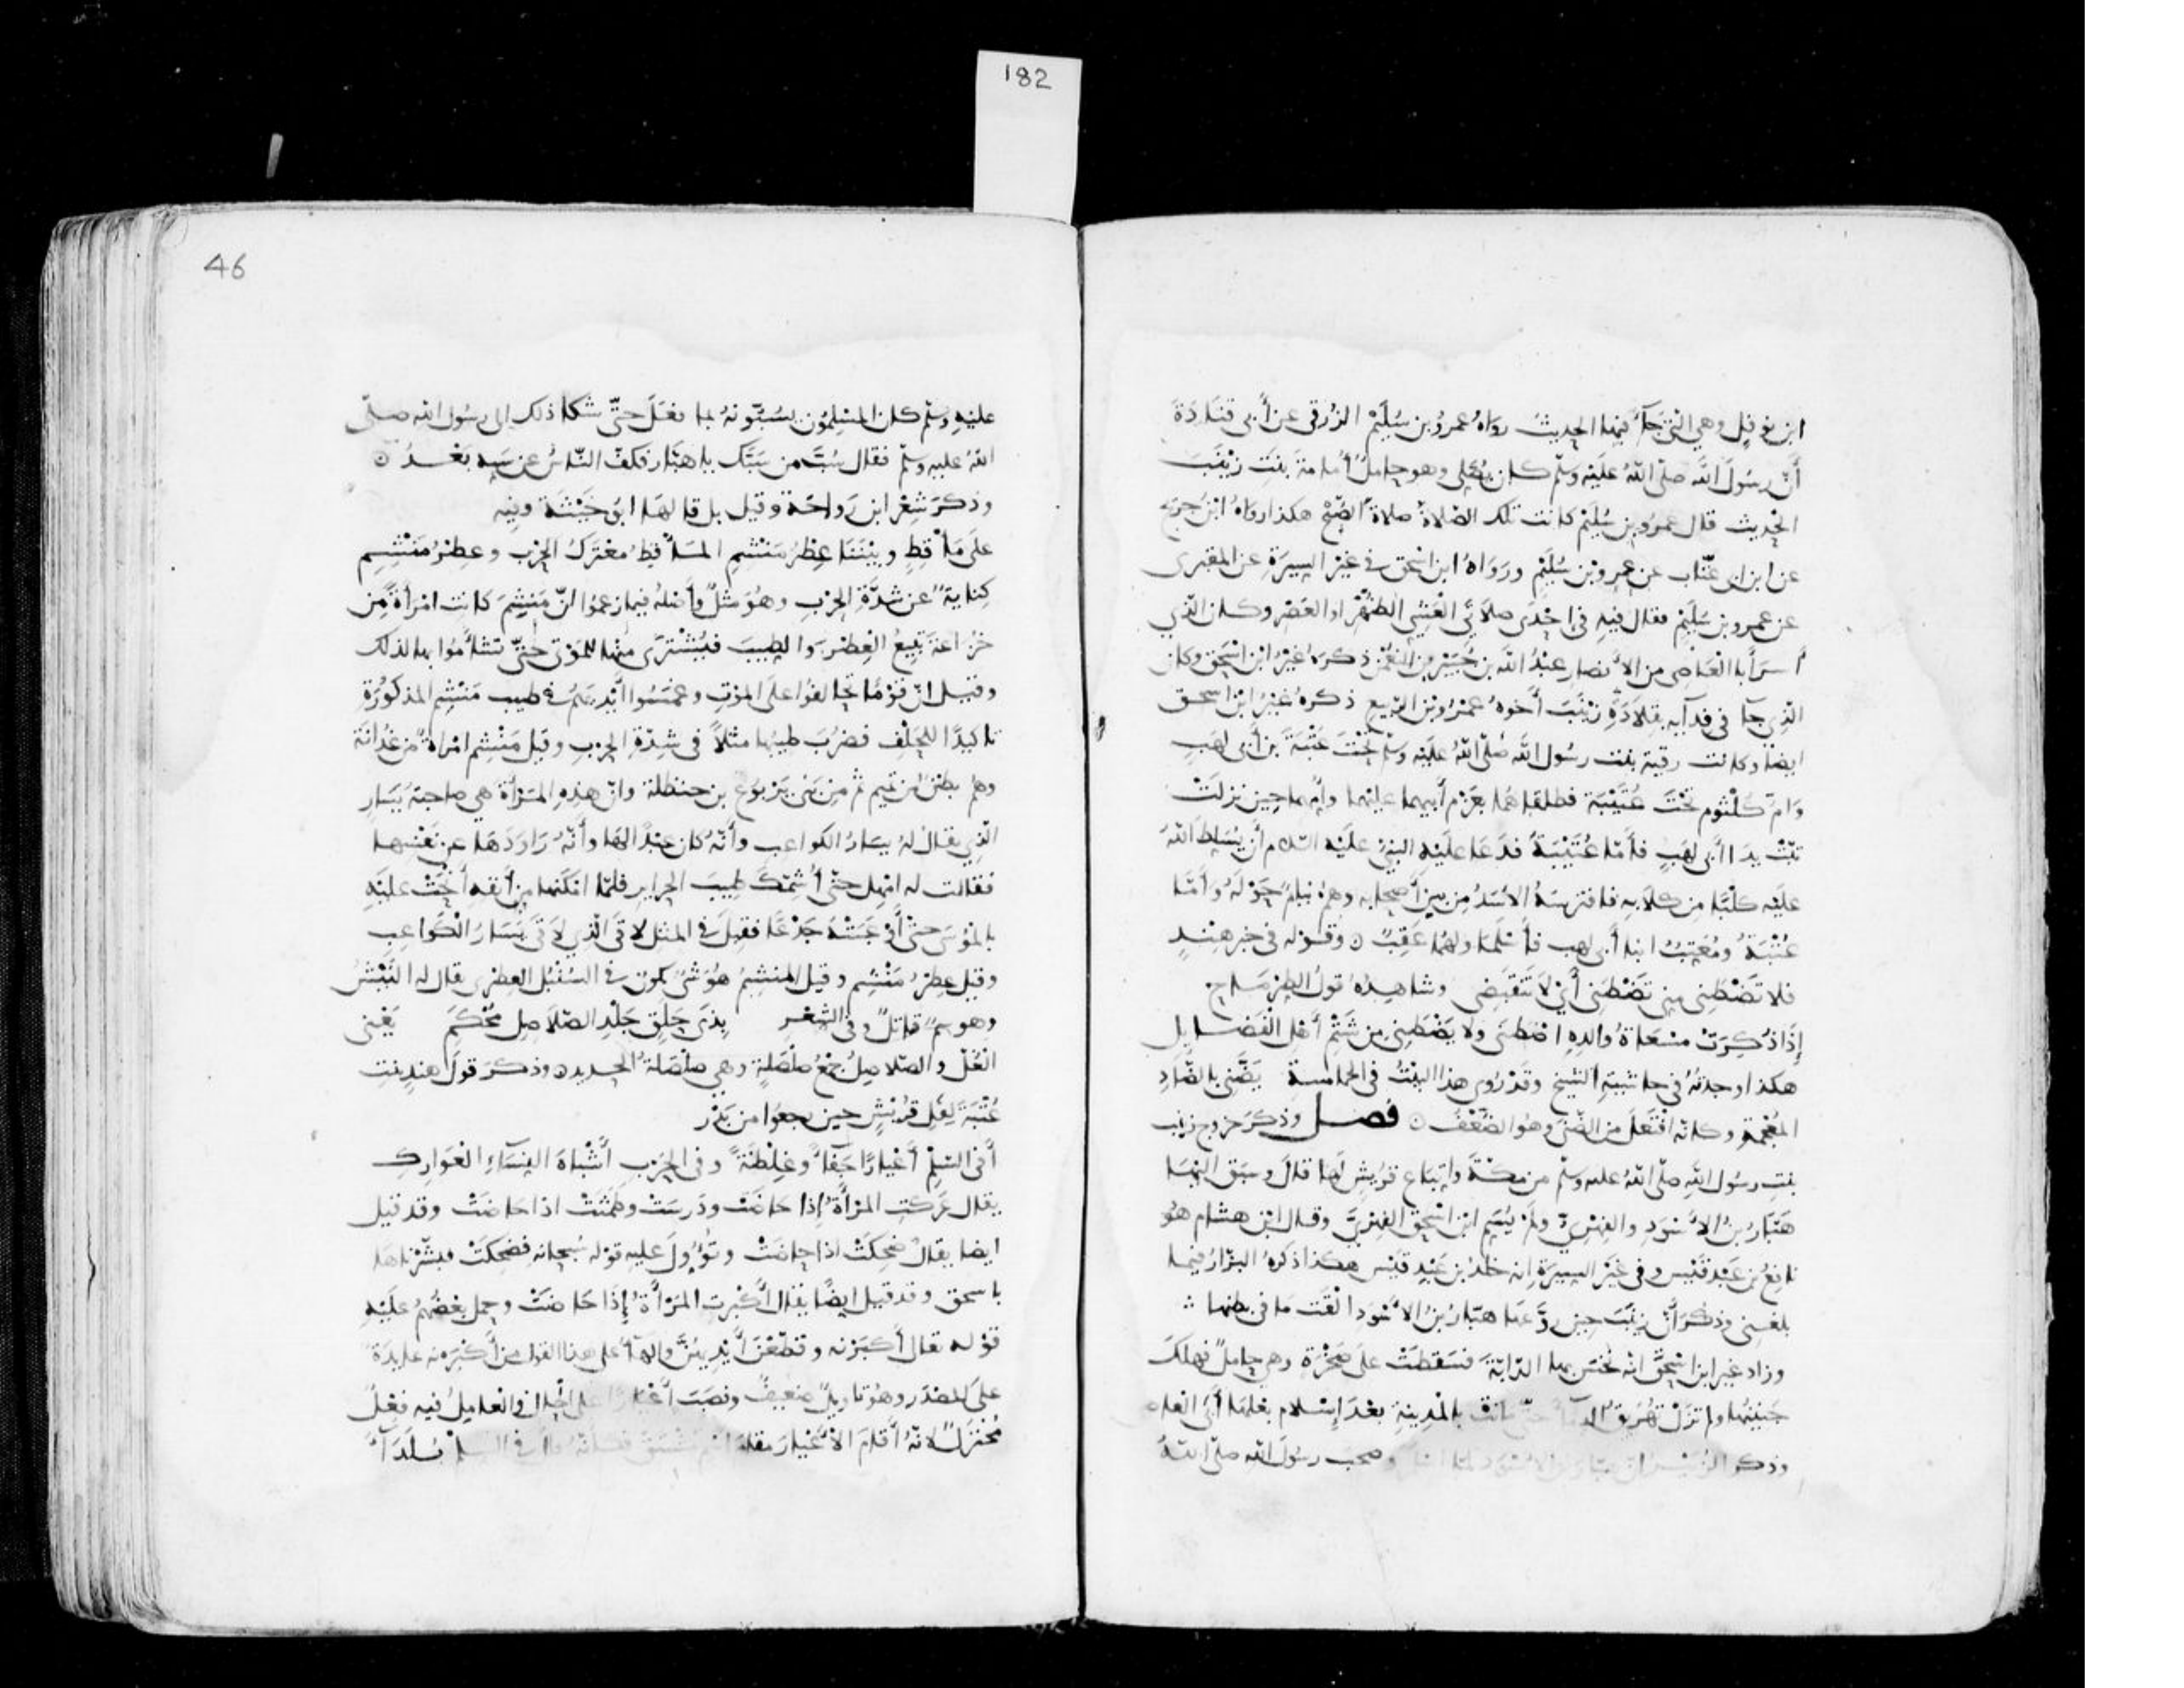 182
ابن نوفل وهي التي جآء فيها الحديث رواه عمرو بن سُلَيْم الزرقي عن أبي قتادة
أنّ رسُولَ الله صلّى اللهُ علَيْه وسلّم كان يُصَلي وهو حاملٌ أُمامة بنتَ زيْنَبَ
الحديث قال عمرو بن سُلَيْم كانت تلك الصّلاةُ صلاةَ الصّبْح هكذا رواهُ ابْنُ جريج
عن ابن ابى عتّاب عن عمرو بن سُلَيْم ورَوَاهُ ابن اسْحق في غيْر السِيرَةِ عن المقبرى
عن عمرو بن سُلَيْم فقال فيهِ في إحْدَى صلاتَي الْعَشِيِّ الظهْر او العَصْر وكان الذي
أسرَ أبا العَاصِى من الأنصارِ عبْدُ الله بن جُبَيْر بن النعْمن ذكرَهُ غيْرُ ابْن اسْحق وكان
الذِي جآ في فدآيه بقِلادَةِ زيْنَبَ أخوهُ عَمْرُو بْن الرّبيع ذكرهُ غيْرُ ابْن اسحق
ايضًا وكانت رقية بنت رسُول الله صَلّى اللهُ علَيْه وسلّم تحْتَ عتْبَةَ بن أبي لهَبٍ
وَامّ كُلْثوم تحْتَ عُتَيْبَة فطلقاهُما بعَزْم أبيهما علَيْهما وأمّهما حِين نزلَتْ
تبّتْ يدَا أبى لهَبٍ فأمّا عُتَيْبَةُ فدَعَا علَيْهِ النبيُّ علَيْه السّلام أن يُسَلِطَ اللهُ
علَيْه كلْبًا مِن كلابِه فافترسَهُ الأسَدُ مِن بين أصحابه وهمْ نيامٌ حَوْلَهُ وأمَّا
عُتْبَةُ ومُعَتِبٌ ابنا أبى لهب فأسْلَما ولهُما عَقِبٌ ن وقَوْله في خبر هنْدٍ
فلا تضْطنِى مِنى تضْطنِى أىْ لا تَنْقَبِضِى وشاهِدُه قولُ الطِرْمَاحِ
إذَا ذُكِرَتْ مسْعَاةُ والدِهِ اضطنَى ولا يضْطنِى مِن شَتْمِ أهْلِ الْفَضَايلِ
هكذا وجدتُهُ في حاشيَةِ الشيْخ وقدْ رُوِى هذا البيْتُ في الحماسةِ يَضَّنى بالضَّادِ
المُعْجَمةِ وكانّه افْتَعَلَ من الضّنَى وهُو الضّعْفُ ن فصل وذكرَ خروج زينب
بنتِ رسُول اللهِ صلّى اللهُ عليه وسلّم من مكّةَ واتِبَاع قرَيْشٍ لَها قالَ وسبَق اليْهَا
هَبّارُ بْنُ الأسْوَدِ والفِهْرِيّ ولَمْ يُسَمِ ابْن اسْحق الفِهْرِيَّ وقال ابْن هشام هُو
نافِعُ بْن عَبْد قَيْس وفى غيْر السِيرَةِ انه خلدُ بن عَبْدِ قيْس هكذا ذكرهُ البزّارُ فيما
بلغنى وذكرَ أنّ زينَبَ حِين روّعها هبّارُ بْنُ الأسْوَد القَت مَا في بطنها
وزاد غير ابن اسْحقَ انه نخسَ بها الدّابّةَ فسَقطَتْ على صَخْرَةٍ وهِي حاملٌ فهلكَ
جَنِينُها ولم تزَلْ تُهَرِيقُ الدمآءَ حتى ماتت بالمَدِينةِ بعْدَ إسْلام بعْلها أبى العاص
وذكر الزُبَيْر أنّ هبّار بن الأسْود لمّا اسلم وصحبَ رسُولَ الله صلّى اللهُ
46
علَيْهِ وسلّم كان المُسْلِمُون يسُبّونهُ بما فعَلَ حتّى شكا ذلك الى رسُول الله صلّى
اللهُ عليه وسلّم فقال سُبَّ من سَبَّك يا هبّار فكفّ النّاسُ عن سَبِه بَعْدُ ن
وذكرَ شِعْرَ ابن رَواحَة وقيل بل قالهَا ابُو خَيْثمَة وفيه
علَى مَأقِطٍ وبيْنَنا عِطْرُ مَنْشِمِ المأقِطُ مُعْتَرَكُ الحرْب وعِطْرُ مَنْشِمٍ
كِنايةٌ عن شدَّةِ الحرْبِ وهُو مثلٌ وأصْلهُ فيما زعموا انّ مَنْشِمَ كانت امْرأةً مِن
خُزاعة تبيعُ الْعِطْرَ والطيبَ فيُشْترَى مِنْها للمَوْتى حتّى تشاءمُوا بها لذلك
وقيل انّ قوْمًا تحالفُوا على المَوْتِ وغمَسُوا أيْدِيَهُمْ في طِيب مَنْشِمَ المذكُورَةِ
تاكيدًا للحِلْفِ فضُرِبَ طيبُها مثلاً فى شِدّةِ الحرْبِ وقيل مَنْشِمُ امْراةٌ من غُدَانَة
وهم بطْنٌ من تميم ثم مِن بَنى يَرْبوع بن حنظلة وانّ هذِهِ المرْأةَ هي صاحبَةُ يَسَارِ
الّذِي يقالُ لهُ يسارُ الكواعِبِ وأنّهُ كان عبْدًا لها وأنّهُ راوَدَها عن نفْسها
فقالت له امْهِل حتّى أُشِمّكَ طِيبَ الحراير فلمّا امْكَنَها من أنفِهِ أنْحَتْ عليْهِ
بالمُوسَى حتّى أوْعَبَتْهُ جَدْعًا فقيلَ في المثَل لاقَى الّذِي لاقَى يَسَارُ الْكَواعِبِ
وقيل عِطْرُ مَنْشِم وقيل المنْشِمُ هُو شىٌ يكونُ في السُنْبُل العِطْرِى يقال لهُ البيْشُ
وهو سمٌّ قاتلٌ وفى الشِعْر بذى حَلَقٍ جَلْدِ الصّلاصِل مُحْكَمِ يَعْنى
الْغُلّ والصّلاصِلُ جمْعُ صلْصَلةٍ وهِي صلْصَلةُ الحديد ن وذكرَ قولَ هندٍ بنتِ
عُتْبَةَ لِفَلِ قُرَيْشٍ حِين رجعُوا من بَدْرٍ
أفى السّلْمِ أعْيارًا جفآءً وغِلْظةً وفى الحَرْبِ أشْباهَ النِسَآءِ الْعَوَارِكِ
يقال عَركتِ المَرْأةُ إذا حَاضَتْ ودَرسَتْ وطَمَثَتْ اذا حاضَتْ وقد قيل
ايضا يقال ضحِكَتْ اذا حاضَتْ وتُؤوِّلَ عليه قوْله سُبحانه فضحِكَتْ فبَشّرْناهَا
باسحق وقد قيل ايضًا يقال أكْبرت المَرْأةُ إذَا حَاضَتْ وحمل بعْضُهُم علَيْهِ
قوْله تعالى أكبَرْنه وقطّعْنَ أيْدِيَهُنَّ والهآءُ على هذا القول من أكْبَرنه عايدَةٌ
على المصْدَر وهُو تاويلٌ ضعيفٌ ونصَبَ أعْيارًا على الحال والعامِلُ فيه فعْلٌ
مُخْتزَلٌ لانّهُ أقامَ الأعْيارَ مقامَ اسْم مُشْتَقّ فكأنّهُ قال في السلم بُلَدَآءَ